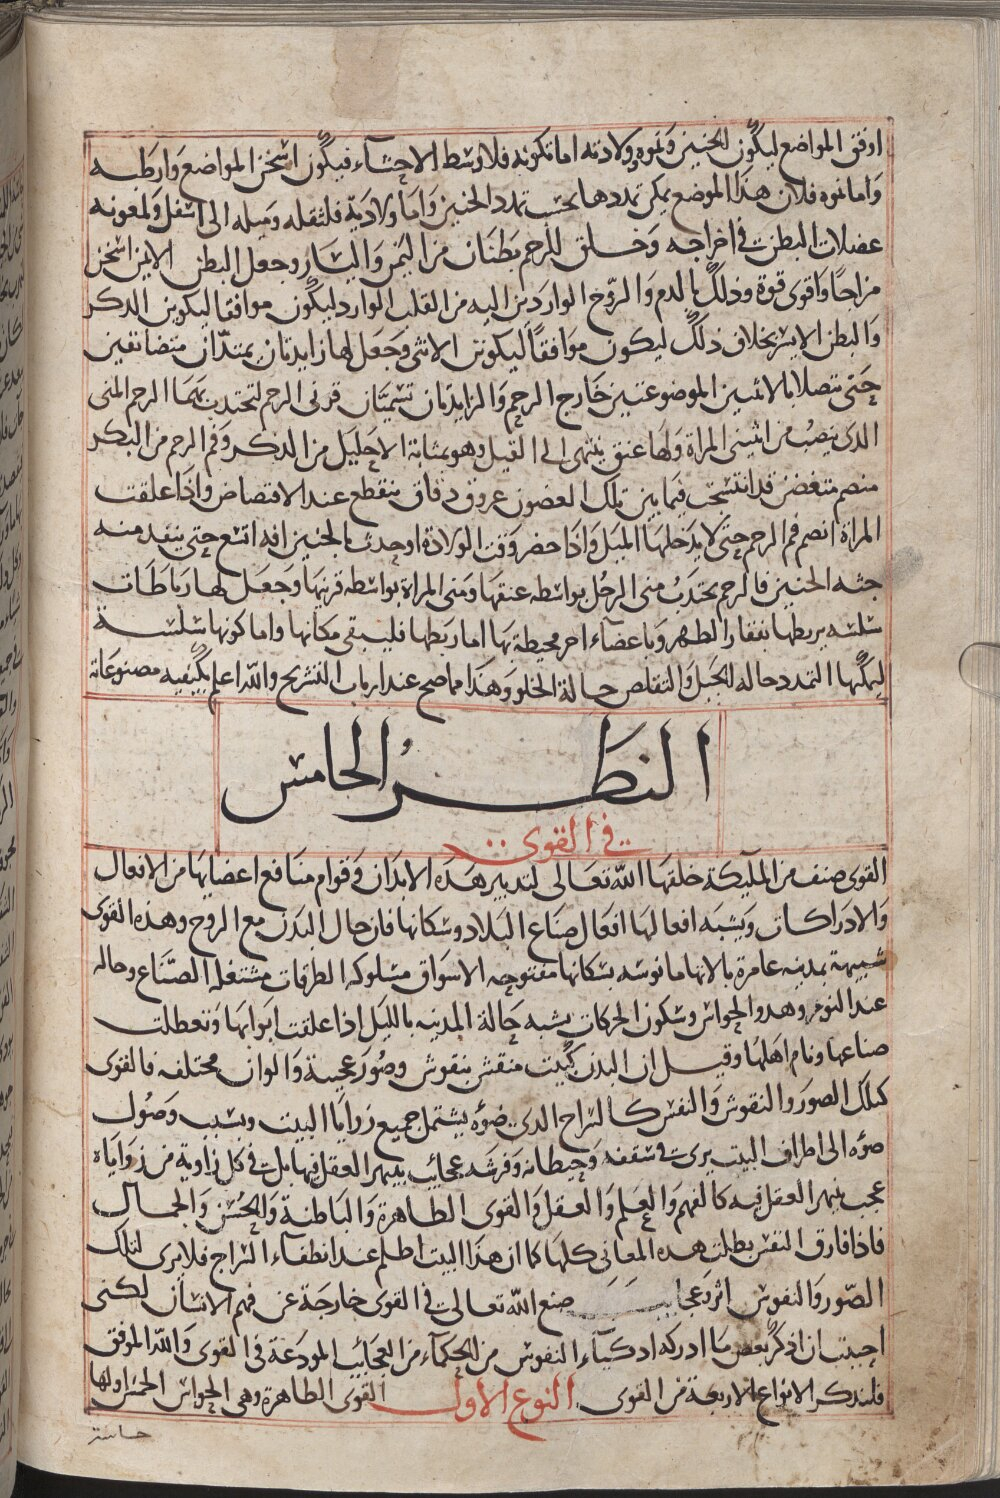 اوفق المواضع ليكون الجنين ونموه وولادته اما تكونه فلاوسط الاحشاء فيكون اسخن المواضع وارطبه
واما نموه فلان هذا الموضع يمكن تمددها بحسب تمدد الجنين واما ولاديه فلثقله وميله الى اسفل ولمعونه
عضلات البطن في اخراجه وخلق للرحم بطنان من اليمن واليسار وجعل البطن الايمن اسخن
مزاجا واقوى قوة وذلك بالدم والروح الواردين اليه من القلب الوارد ليكون موافقا ليكون الدكر
والبطن الايسر بخلاف ذلك ليكون موافقا ليكون الانثى وجعل لها زايدتان يمتدان متضائقين
حتى يتصلا بالانثيين الموضوعتين خارج الرحم والزايدتان تسميتان قرني الرحم لتجدب بهما الرحم المنى
الدى ينصب من انثيى المراة ولها عنق ينتهى الى القبل وهو بمثابة الاحليل من الدكر وفم الرحم من البكر
منضم متغضن قد انتسجت فيما بين تلك الغضون عروق دقاق ينقطع عند الاقتضاض واذا علقت
المراة انضم فم الرحم حتى لا يدخلها الميل واذا حضر وقت الولادة او حدث بالجنين افه اتسع حتى ينفد منه
جثه الجنين فالرحم تجدب منى الرجل بواسطه عنقها ومنى المراة بواسطه قرنيها وجعل لها رباطات
سلسه يربطها بفقار الظهر وباعضاء اخر محيطة بها اما ربطها فليبقى مكانها واما كونها سلسة
ليمكنها التمدد حاله الحبل والتقلص حالة الخلو وهذا مما صح عند ارباب التشريح والله اعلم بكيفيه مصنوعاته
النظر الخامس
في القوى
القوى صنف من المليكة خلقها الله تعالى لتدبير هده الابدان وقوام منافع اعضايها من الافعال
والادراكات ويشبه افعالها افعال صناع البلاد وسكانها فان حال البدن مع الروح وهذه القوى
شبيهة بمدينه عامرة بالاتها مانوسه بسكانها مفتوحه الاسواق مسلوكه الطرقات مشتغله الصناع وحاله
عند النوم وهدو الحواس وسكون الحركات يشبه حالة المدينه بالليل اذا غلقت ابوابها وتعطلت
صناعها ونام اهلها وقيل ان البدن كبيت منقش بنقوش وصور عجيبة والوان مختلفه فالقوى
كتلك الصور والنقوش والنفس كالسراج الدى ضوه يشتمل جميع زوايا البيت وبسبب وصول
ضوه الى اطراف البيت يرى في سقفه وحيطانه وفرشه عجايب يتحير العقل فيها بل في كل زاوية من زواياه
عجب يتحير العقل فيه كالفهم والعلم والعقل والقوى الظاهرة والباطنة والحسن والجمال
فاذا فارق النفس بطلت هده المعانى كلها كما ان هذا البيت اظلم عند انطفاء السراج فلا يرى لتلك
الصور والنقوش اثر وعجايب صنع الله تعالى في القوى خارجة عن فهم الانسان لكنى
احببت ان اذكر بعض ما ادركه ادكياء النفوس من الحكماء من العجايب المودعة في القوى والله الموفق
فلندكر الانواع الاربعة من القوى النوع الاول القوى الظاهرة وهى الحواس الخمس اولها
حاسة